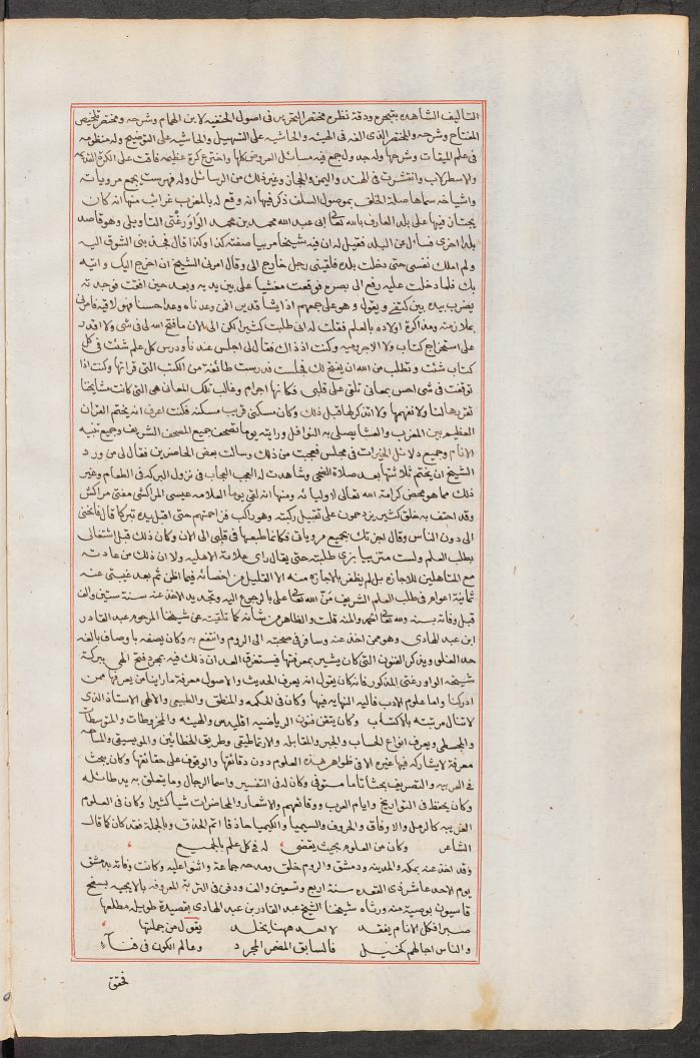 التآليف الشاهدة بتبحره ودقة نظره مختصر التحرير فى اصول الحنفيه لابن الهمام وشرحه ومختصر تلخيص
المفتاح وشرحه والمختصر الذى الفه فى الهيئه والحاشيه على التسهيل والحاشيه على التوضيح وله منظومه
فى علم الميقات وشرحها وله جدول جمع فيه مسائل العروض كلها واخترع كرة عظيمه فاقت على الكرة القديمه
والاسطرلاب وانتشرت فى الهند واليمن والحجاز وغير ذلك من الرسائل وله فهرست يجمع مروياته
واشياخه سماها صلة الخلف بموصول السلف ذكر فيها انه وقع له بالمغرب غرائب منها انه كان
مجتازا فيها على بلد العارف بالله تعالى ابى عبد الله محمد بن محمد الواورغتى التاويلى وهو قاصد
بلدا اخرى فسأل عن البلد فقيل له ان فيه شيخا مربيا صفته كذا وكذا قال فجذبنى الشوق اليه
ولم املك نفسى حتى دخلت بلده فلقينى رجل خارج الى وقال امرنى الشيخ ان اخرج اليك واتيه
بك فلما دخلت عليه رفع الى بصره فوقعت مغشيا على بين يديه وبعد حين افقت فوجدته
يضرب بيده بين كتفى ويقول وهو على جمعهم اذا يشا قدير افمن وعدناه وعدا حسنا فهو لاقيه فامرنى
بملازمته ومذاكرة اولاده بالعلم فقلت له انى طلبت كثيرا لكن الى الان ما فتح الله لى فى شى ولا اقدر
على استخراج كتاب ولا الاجروميه وكنت اذ ذاك فقال لى اجلس عندنا ودرس كل علم شئت فى كل
كتاب شئت ونطلب من الله ان يفتح لك فجلست فدرست طائفة من الكتب التى قراتها وكنت اذا
توقفت فى شى احس بمعانى تلقى على قلبى فكانها اجرام وغالب تلك المعانى هى التى كانت مشايخنا
تقررها لنا ولا نفهمها ولا اتذكرها قبل ذلك وكان مسكنى قريب مسكنه فكنت اعرف انه يختم القران
العظيم بين المغرب والعشا يصلى به النوافل ورايته يوما تصفح جميع المصحف الشريف وجميع تنبيه
الانام وجميع دلائل الخيرات فى مجلس فعجبت من ذلك وسالت بعض الحاضرين فقال لى من ورد
الشيخ ان يختم ثلاثتها بعد صلاة الضحى وشاهدت له العجب العجاب فى نزول البركه فى الطعام وغير
ذلك مما هو محض كرامة الله تعالى لاوليائه ومنها انه لقى يوما العلامه عيسى المراكشى مفتى مراكش
وقد احتف به خلق كثير يزدحمون على تقبيل ركبته وهو راكب فزاحمتهم حتى اقبل يده تبركا قال فانحنى
الى دون الناس وقال اجزتك بجميع مروياتى فكانما طبعها فى قلبى الى الان وكان ذلك قبل اشتغالى
بطلب العلم ولست متزييا بزى طلبته حتى يقال راى علامة الاهليه ولا ان ذلك من عادته
مع المتاهلين للاجازه بل لم يظفر بالاجازه منه الا القليل من اخصائه فيما اظن ثم بعد غيبتى عنه
ثمانية اعوام فى طلب العلم الشريف من الله تعالى على بالرجوع اليه وتجديد الاخذ عنه سنة ستين والف
قبل وفاته بسنه ولله تعالى الحمد والمنه قلت والظاهر من شانه كما تلقيته عن شيخنا المرحوم عبد القادر
ابن عبد الهادى وهو ممن اخذ عنه وسافر فى صحبته الى الروم وانتفع به وكان يصفه باوصاف بالغه
حد الغلو ويذكر الفنون التى كان يشير بمعرفتها فيستغرق العد ان ذلك فيه بمجرد فتح الهى ببركة
شيخه الواورغتى المذكور فانه كان يقول انه يعرف الحديث والاصول معرفة ما راينا من يعرفها ممن
ادركنا واما علوم الادب فاليه النهايه فيها وكان فى الحكمه والمنطق والطبيعى والالهى الاستاذ الذى
لا تنال مرتبته بالاكتساب وكان يتقن فنون الرياضيه اقليدس والهيئه والمخروطات والمتوسطات
والمجسطى ويعرف انواع الحساب والجبر والمقابله والارتماطيقى وطريق الخطائين والموسيقى والمساحه
معرفة لا يشاركه فيها غيره الا فى ظواهر هذه العلوم دون دقائقها والوقوف على حقائقها وكان يبحث
فى العربيه والتصريف بحثا تاما مستوفى وكان له فى التفسير واسما الرجال وما يتعلق به يد طائله
وكان يحفظ فى التواريخ وايام العرب ووقائعهم والاشعار والمحاضرات شيا كثيرا وكان فى العلوم
الغريبه كالرمل والاوفاق والحروف والسيميا والكيميا حاذقا اتم الحذق وبالجملة فقد كان كما قال
الشاعر وكان من العلوم بحيث يقضى له فى كل علم بالجميع
وقد اخذ عنه بمكه والمدينه ودمشق والروم خلق ومدحه جماعة واثنوا عليه وكانت وفاته بدمشق
يوم الاحد عاشر ذى القعده سنة اربع وتسعين والف ودفن فى التربة المعروفه بالايجيه بسفح
قاسيون بوصية منه ورثاه شيخنا الشيخ عبد القادر بن عبد الهادى بقصيدة طويله مطلعها
صبرا فكل الانام يفقد لا احد ههنا يخلد يقول من جملتها
والناس اجالهم كخيل فالسابق المضمر المجرد وعالم الكون فى فناء
فحقق